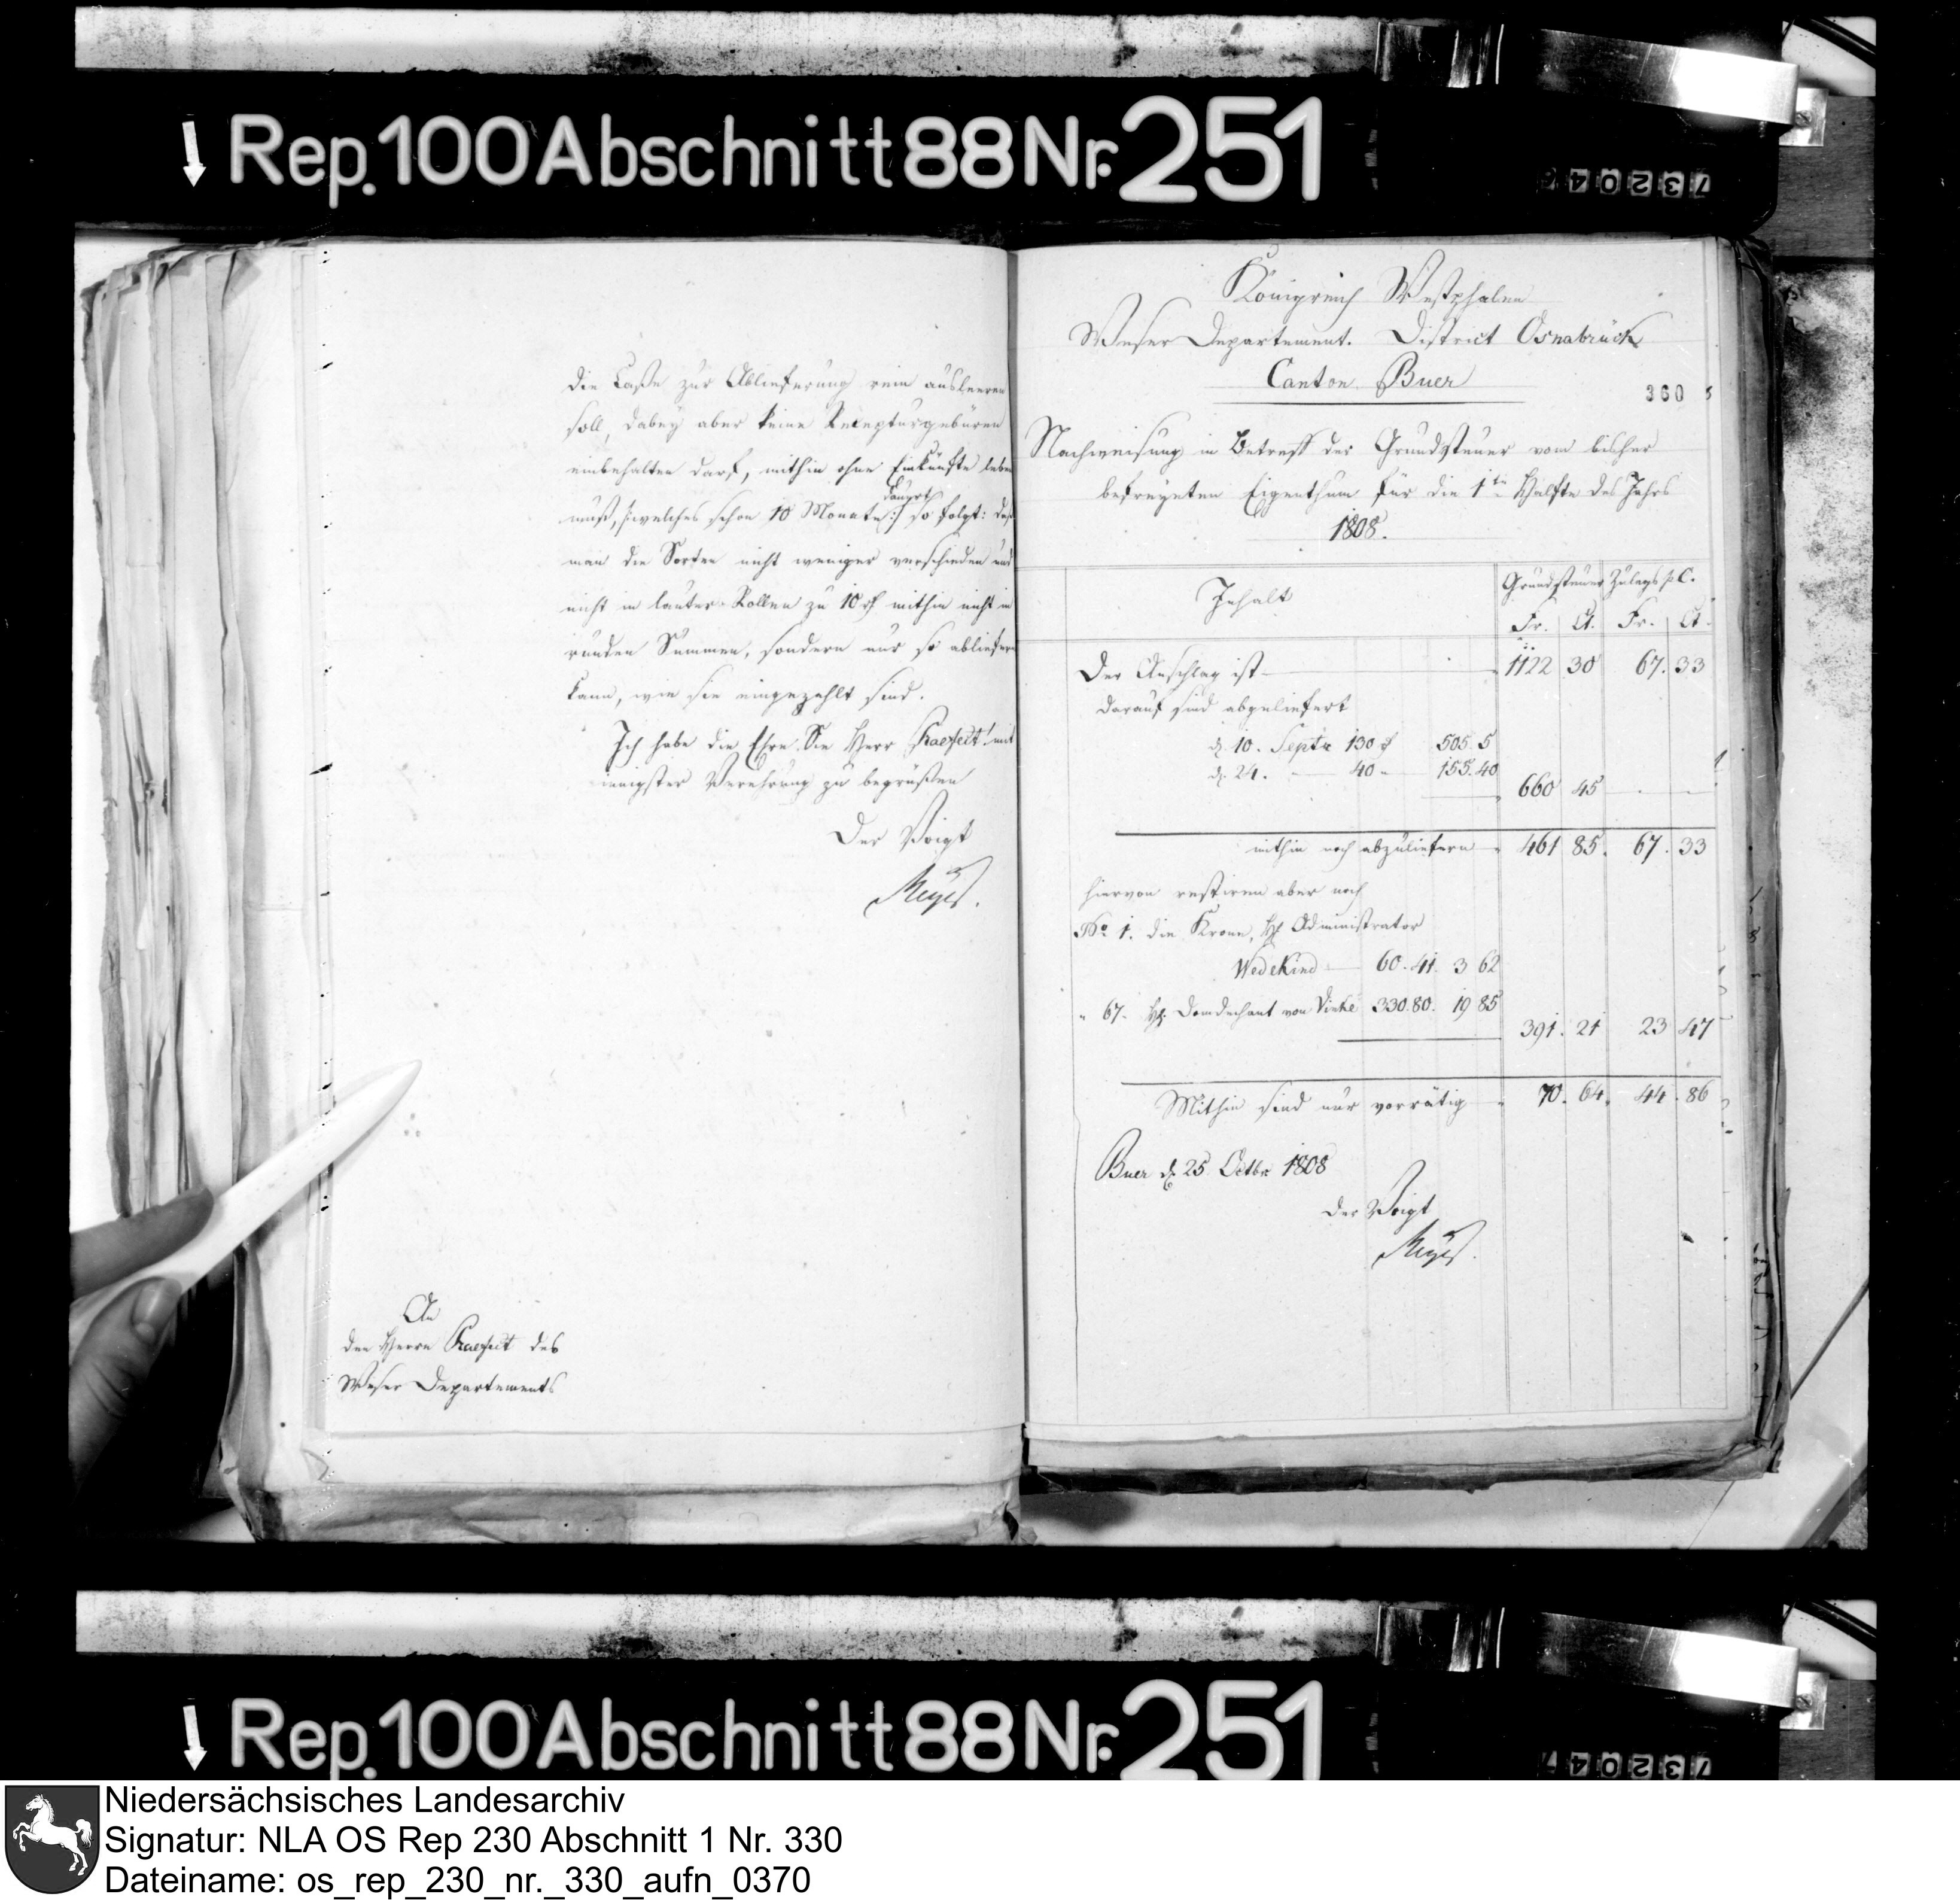 Rep. 100 Abschnitt 88 Nr. 251
die Caße zur Ablieferung rein ausleeren
soll, dabey aber keine Recepturgebüren
einbehalten darf, mithin ohne Einkünfte leben
dauert
muß, /:welches schon 10 Monate :/ so folgt: daß
man die Sorten nicht weniger verschieden und
nicht in lauter Rollen zu 10 rf mithin nicht in
runden Summen, sondern nur so abliefern
kann, wie sie eingezahlt sind.
Ich habe die Ehre Sie Herr Praefect! mit
innigster Verehrung zu begrüßen
Der Voigt
Meyer.
An
den Herrn Praefect des
Weser Departements
Königreich Westphalen
Weser Departement. District Osnabrück
Canton Buer
360
Nachweisung in Betreff der Grundsteuer vom bisher
befreyeten Eigenthum für die 1te Hälfte des Jahrs
1808.
Inhalt Grundsteuer Zulags p. C.
Fr. Ct. Fr. Ct.
Der Anschlag ist 1122 30 67. 33
darauf sind abgeliefert
d. 10. Septr 130 rf 505. 5
d. 24. — 40 " 155. 40
660 45 . —
mithin noch abzuliefern 461 85. 67. 33
hiervon restiren aber noch
No 1. die Krone, H. Administrator
Wedekind — 60. 41. 3 62
" 67. H. Domdechant von Vinke 330. 80. 19 85
391. 21 23 47
Mithin sind nur vorrätig 70. 64. 44. 86
Buer d. 25. Octbr 1808
der Voigt
Meyer.
Rep. 100 Abschnitt 88 Nr. 251
Niedersächsisches Landesarchiv
Signatur: NLA OS Rep 230 Abschnitt 1 Nr. 330
Dateiname: os_rep_230_nr._330_aufn_0370